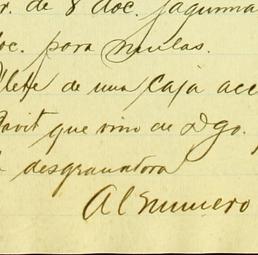 r. de 8 doc. jaquima
oc. para mulas.
flete de una caja acc
avit que vino de Dgo.
desgranadora
Al numero